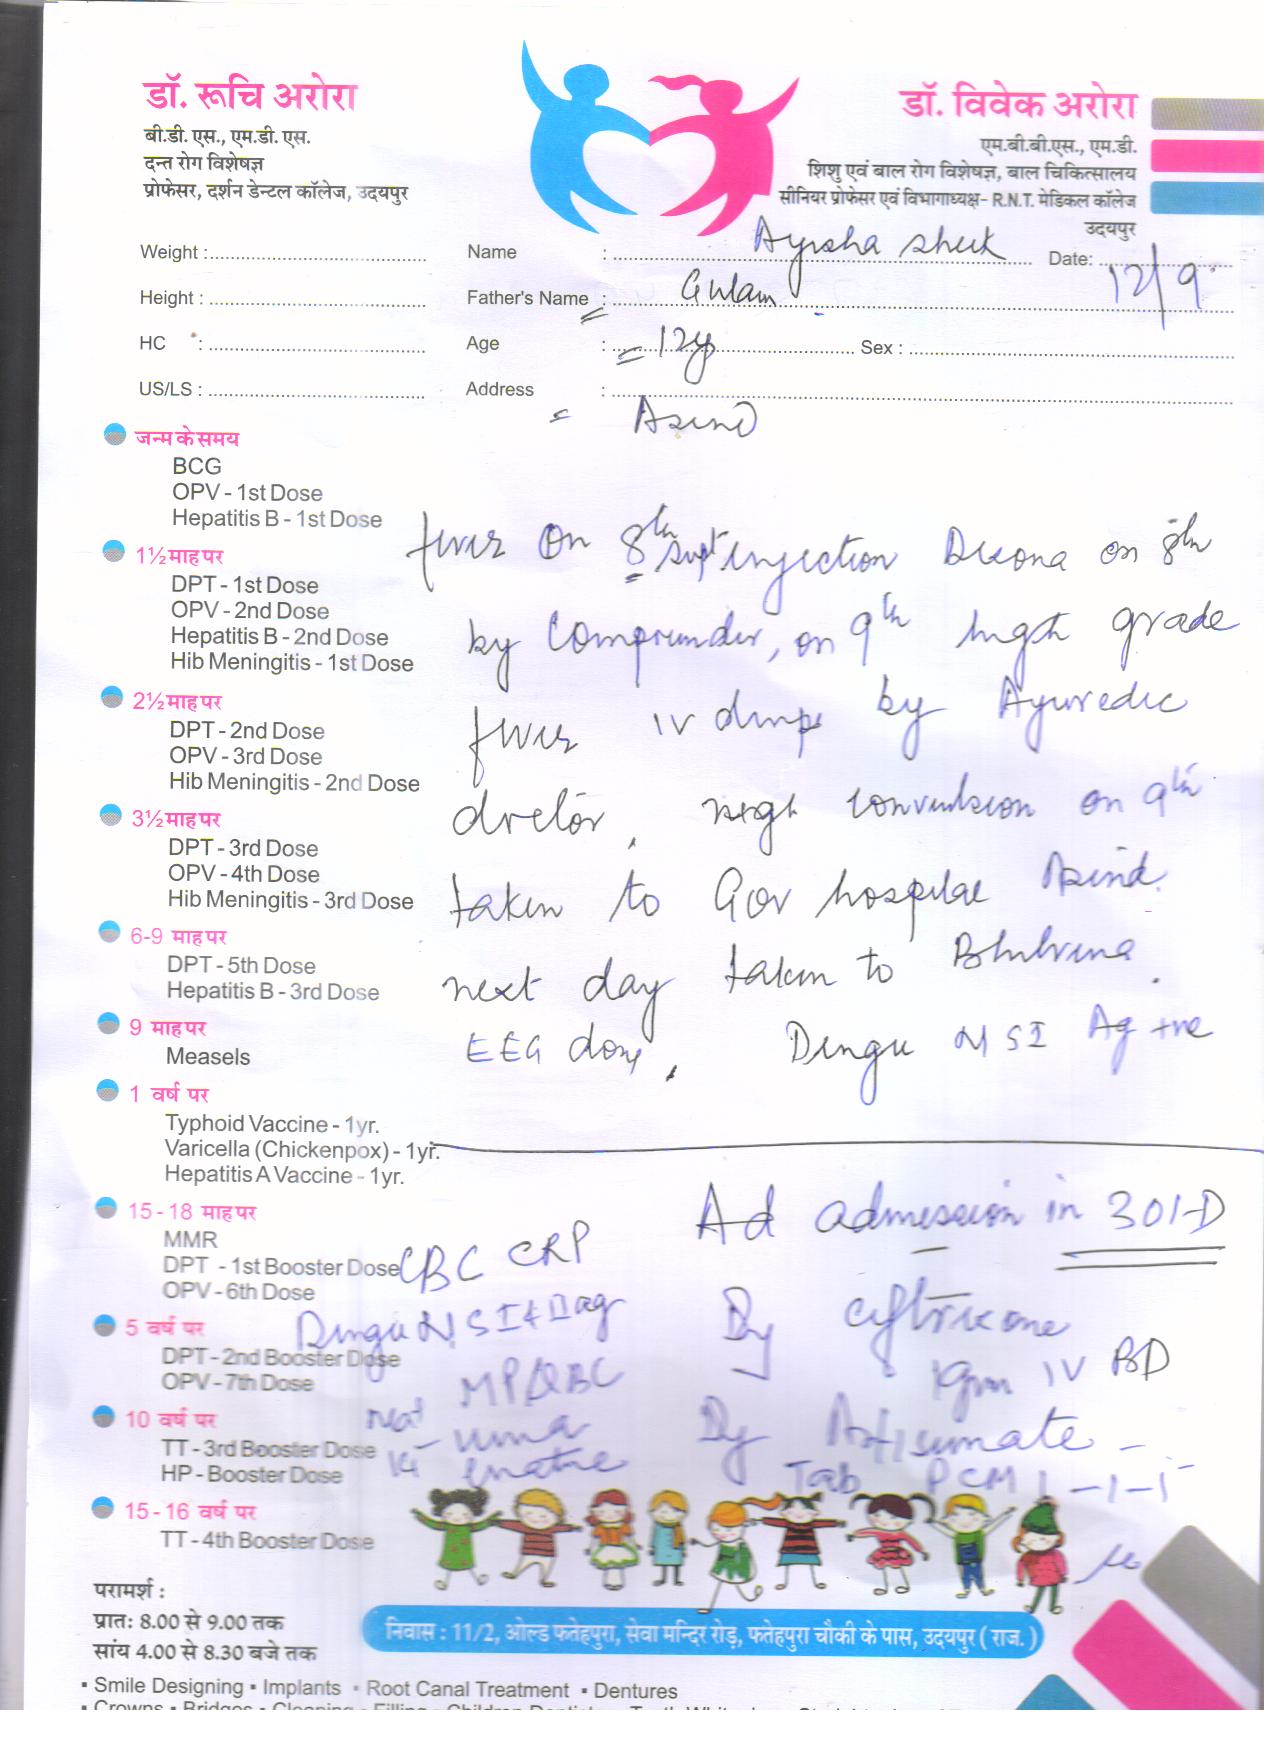 डॉ. रूचि अरोरा
बी.डी. एस., एम.डी. एस.
दन्त रोग विशेषज्ञ
प्रोफेसर, दर्शन डेन्टल कॉलेज, उदयपुर
डॉ. विवेक अरोरा
एम.बी.बी.एस., एम.डी.
शिशु एवं बाल रोग विशेषज्ञ, बाल चिकित्सालय
सीनियर प्रोफेसर एवं विभागाध्यक्ष- R.N.T. मेडिकल कॉलेज
उदयपुर
Weight : Name : Ayesha sheik Date: 12/9
Height : Father's Name : Gulam
HC : Age : 12y Sex :
US/LS : Address :
Asind
जन्म के समय
BCG
OPV - 1st Dose
Hepatitis B - 1st Dose
1½ माह पर
DPT - 1st Dose
OPV - 2nd Dose
Hepatitis B - 2nd Dose
Hib Meningitis - 1st Dose
2½ माह पर
DPT - 2nd Dose
OPV - 3rd Dose
Hib Meningitis - 2nd Dose
3½ माह पर
DPT - 3rd Dose
OPV - 4th Dose
Hib Meningitis - 3rd Dose
6-9 माह पर
DPT - 5th Dose
Hepatitis B - 3rd Dose
9 माह पर
Measels
1 वर्ष पर
Typhoid Vaccine - 1yr.
Varicella (Chickenpox) - 1yr.
Hepatitis A Vaccine - 1yr.
15-18 माह पर
MMR
DPT - 1st Booster Dose
OPV - 6th Dose
5 वर्ष पर
DPT - 2nd Booster Dose
OPV - 7th Dose
10 वर्ष पर
TT - 3rd Booster Dose
HP - Booster Dose
15-16 वर्ष पर
TT - 4th Booster Dose
fever on 8th Sept injection Dexona on 8th
by compounder, on 9th high grade
fever IV drips by Ayurvedic
doctor, convulsion on 9th
taken to Gov hospital Asind.
next day taken to Bhilwara.
EEG done, Dengu NSI Ag +ve
Ad admission in 301-D
CBC CRP
Dengu NSI
MP QBC
Urea
Dy ceftrixone
1gm IV BD
Dy Artisumate -
Tab PCM 1-1-1
परामर्श :
प्रातः 8.00 से 9.00 तक
सांय 4.00 से 8.30 बजे तक
निवास : 11/2, ओल्ड फतेहपुरा, सेवा मन्दिर रोड़, फतेहपुरा चौकी के पास, उदयपुर ( राज. )
▪ Smile Designing ▪ Implants ▪ Root Canal Treatment ▪ Dentures